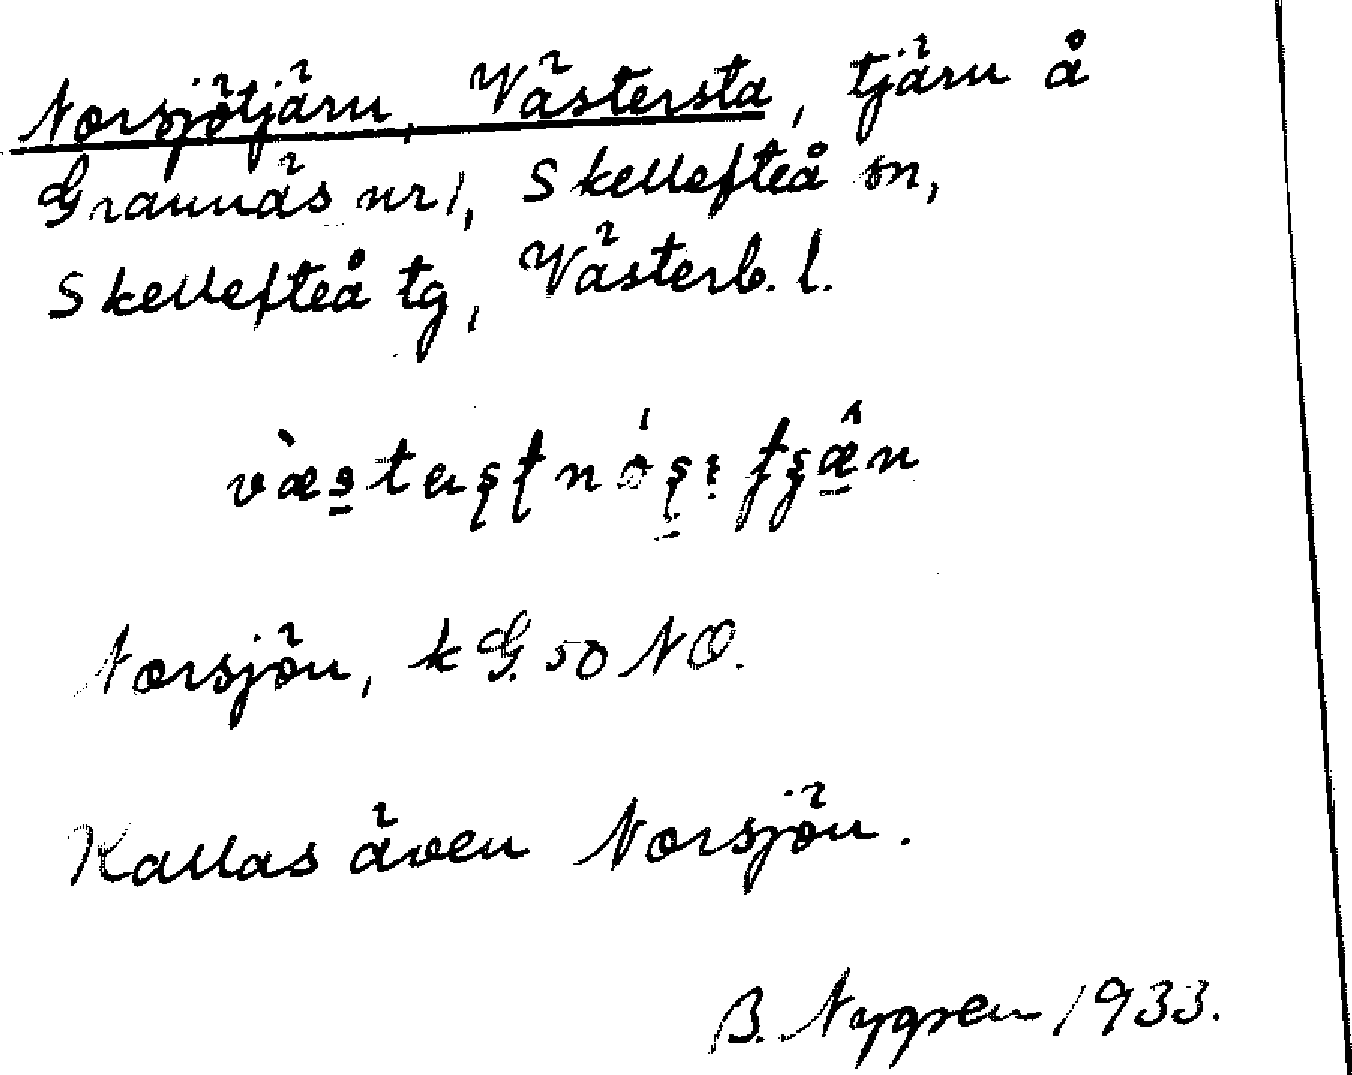 Norsjötjärn, Västersta, tjärn å
Grannäs nr 1, Skellefteå sn,
Skellefteå tg, Västerb. l.
Norsjön, kG. 50 NO.
Kallas även Norsjön.
B. Nygren 1933.